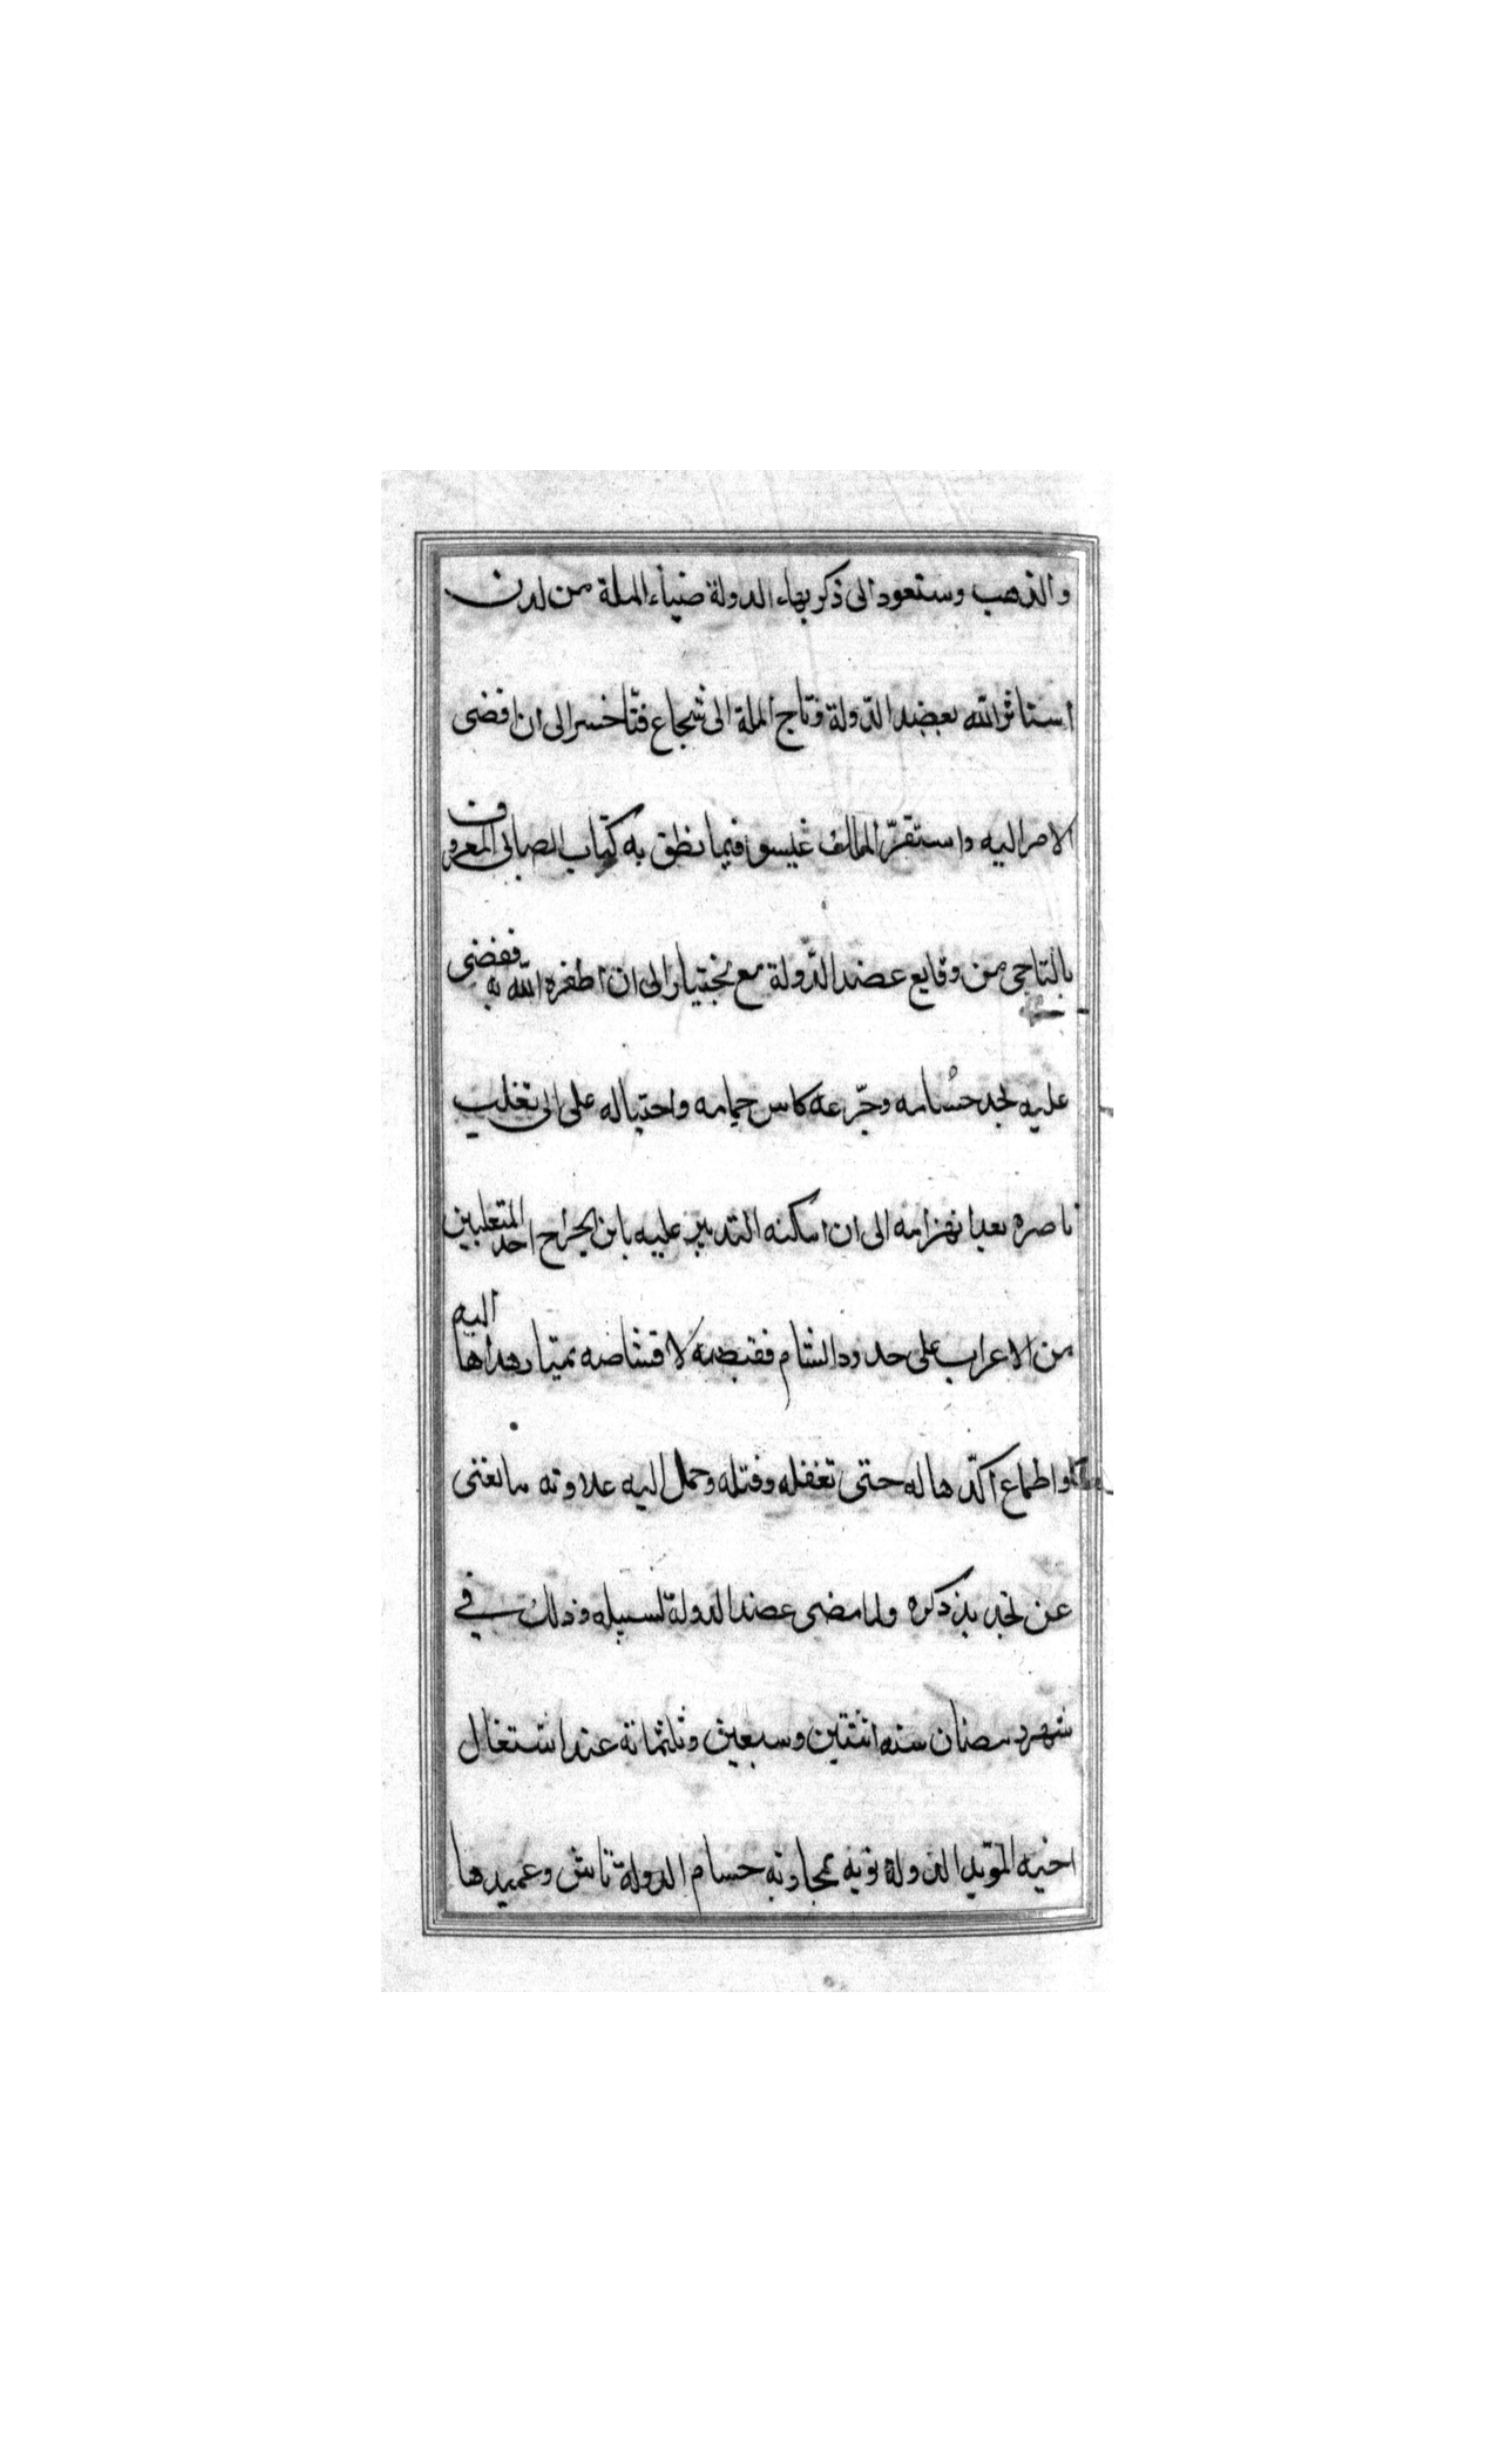 والذهب وستعود الى ذكر بهاء الدولة ضياء الملة من لدن
استاثر الله بعضد الدّولة وتاج الملة ابى شجاع فنّا خسر الى ان افضى
الامر اليه واستقرّ الملك فيما نطق به كتاب الصابى المعروف
بالتاجى من وقايع عضد الدّولة مع بختيار الى ان اظفره الله به فقضى
عليه بحد حسامه وجرّعه كاس حمامه واحتياله على ابى تغلب
ناصره بعد انهزامه الى ان امكنه التدبير عليه بابن الجراح احد المتغلبين
من الاعراب على حدود الشام فقبضه لاقتناصه بمتبار هداها اليه
واطماع اكدّها له حتى تغفله وقتله وحمل اليه علاوته ما يغنى
عن تجديد ذكره ولما مضى عضد الدولة لسبيله وذلك في
شهر رمضان سنه اثنتين وسبعين وثلثمائة عند اشتغال
اخيه المؤيد الدولة بويه بمحاربه حسام الدولة تاش وعميدها